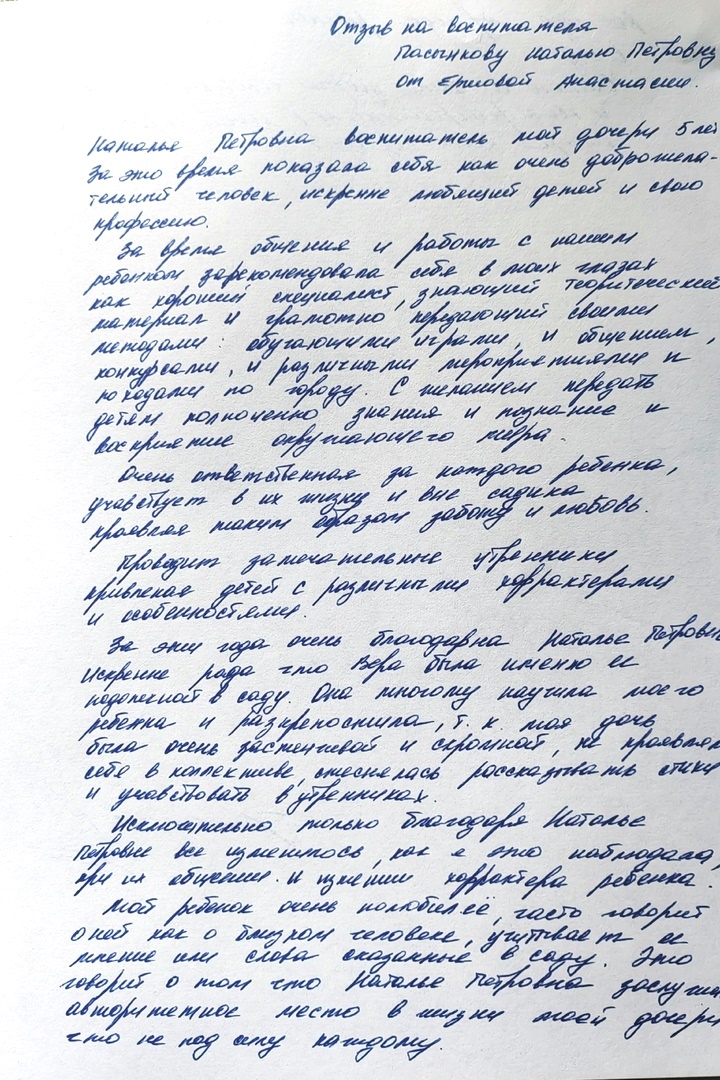 Отзыв на воспитателя
Пасынкову Наталью Петровну
от Ершовой Анастасии.
Наталье Петровна воспитатель моей дочери 5 лет
За это время показала себя как очень доброжела-
тельный человек, искренне любящий детей и свою
профессию.
За время общения и работы с нашим
ребенком зарекомендовала себя в моих глазах
как хороший специалист, знающий теоритический
материал и грамотно передающий своими
методами: обучающими играми, и общением,
конкурсами, и различными мероприятиями и
походами по городу. С желанием передать
детям полноценно знания и познание и
восприятие окружающего мира.
Очень ответственная за каждого ребенка,
учавствует в их жизни и вне садика
проявляя таким образом заботу и любовь.
Проводит замечательные утренники
привлекая детей с различными характерами
и особенностями.
За эти года очень благодарна Наталье Петровне
Искренне рада что Вера была именно ее
подопечной в саду. Она многому научила моего
ребенка и раскрепостила, т.к. моя дочь
была очень застенчивой и скромной, не проявлял
себя в коллективе, стеснялась рассказывать стихи
и учавствовать в утренниках.
Исключительно только благодаря Наталье
Петровне все изменилось, как я это наблюдала,
при их общении. И характера ребенка.
Мой ребенок очень полюбил её, часто говорит
о ней как о близком человеке, учитывает ее
мнение или слова сказанные в саду. Это
говорит о том что Наталье Петровна заслужи
авторитетное место в жизни моей дочери
что не под силу каждому.